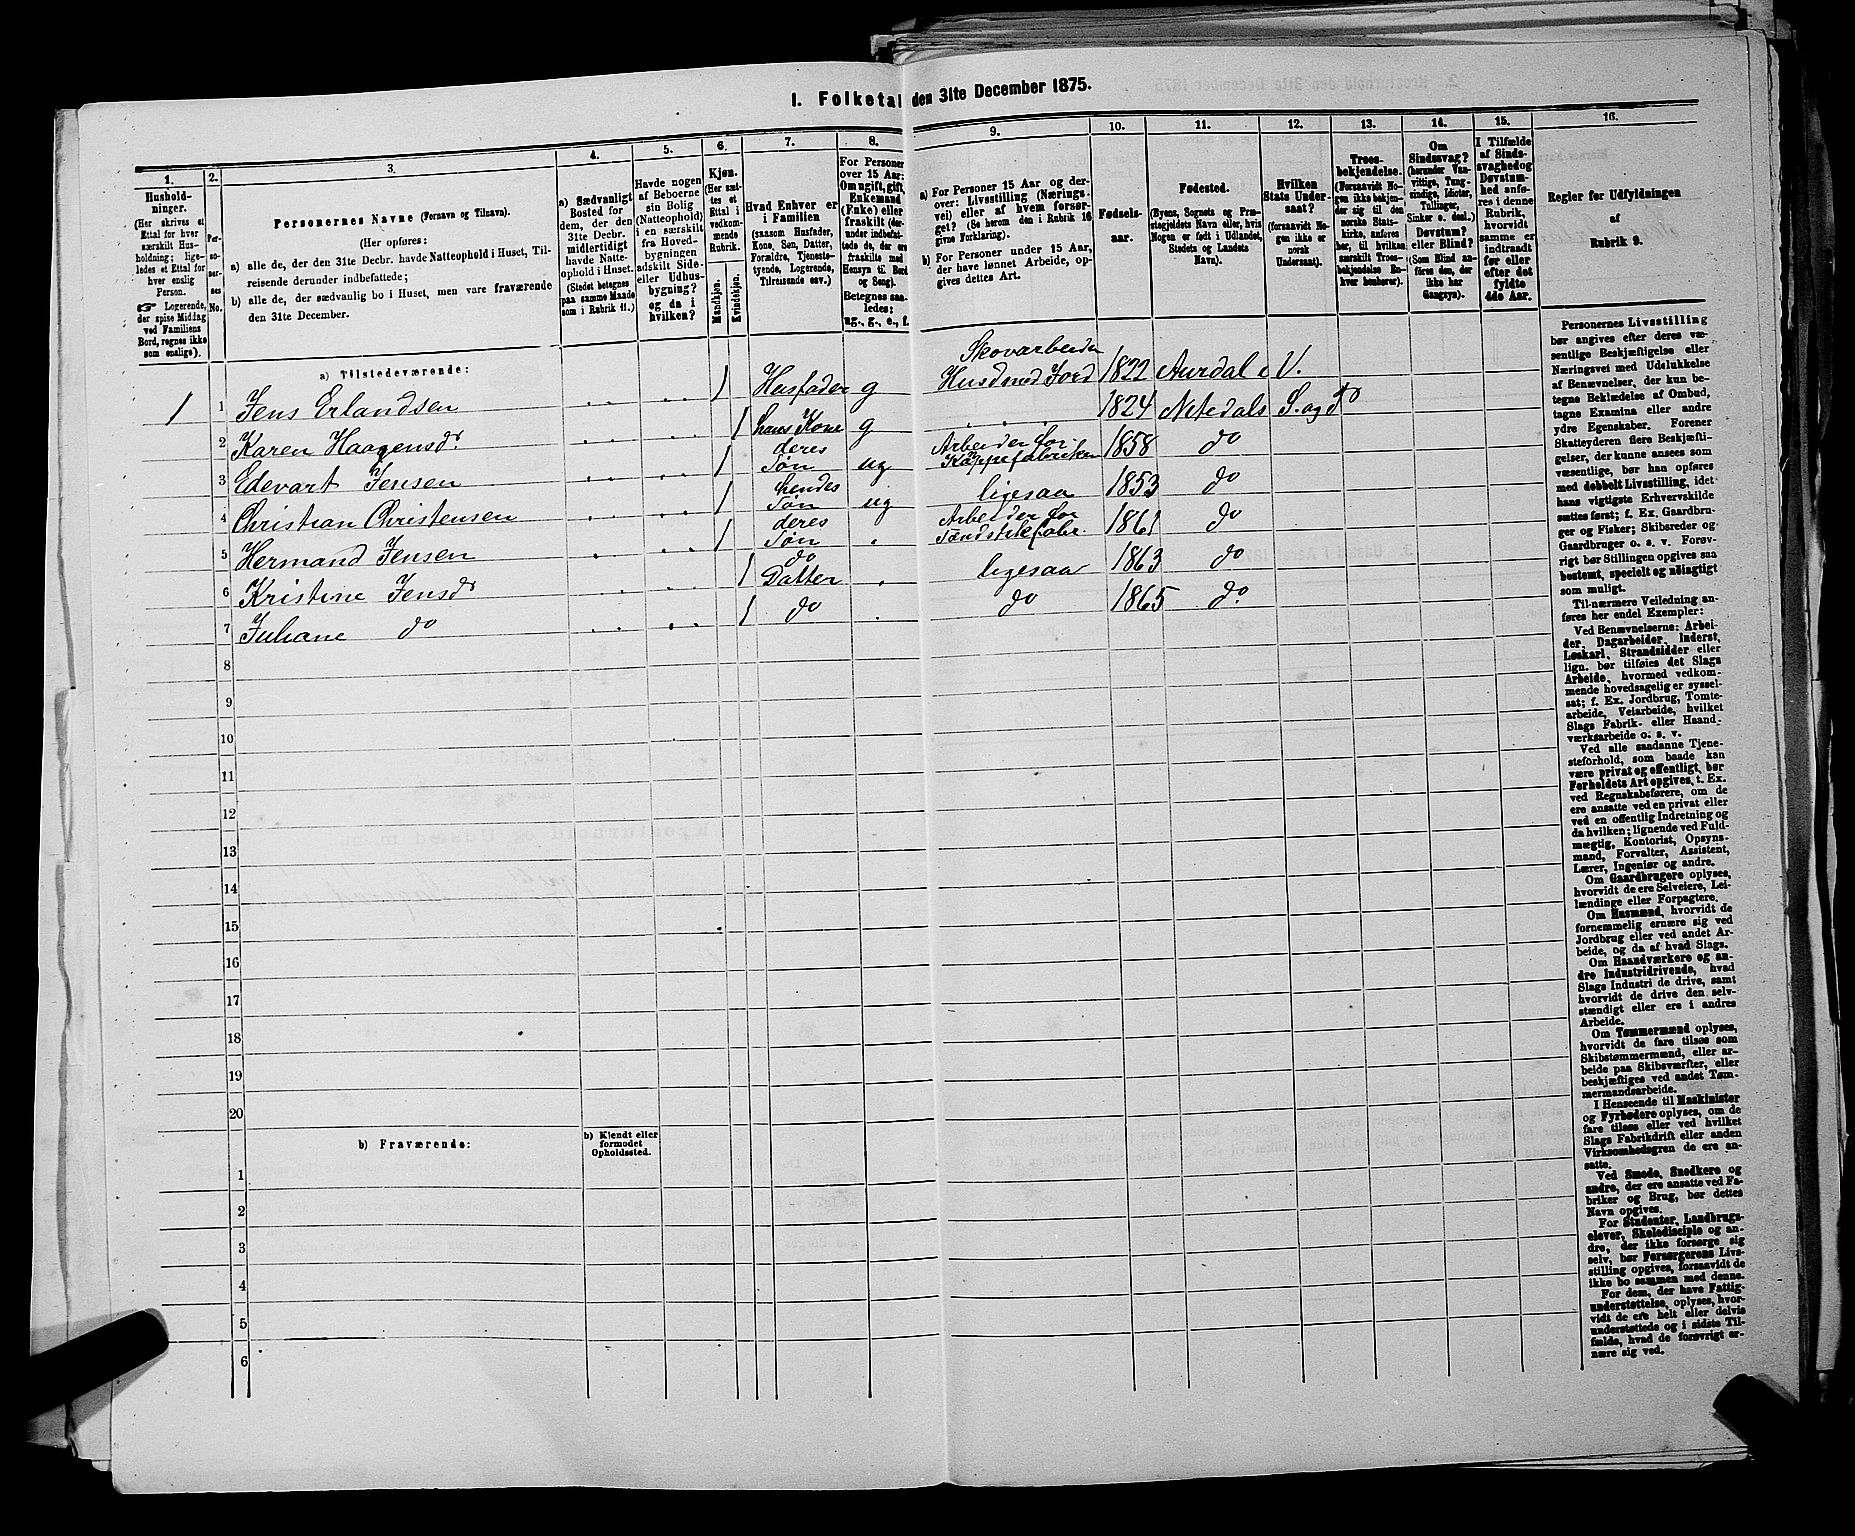 1. Folketal den 31te December 1875.
1.
Hushold-
ninger.
(Her skrives et
Ettal for hver
særskilt Hus-
holdning; lige-
ledes et Ettal for
hver enslig
Person.
☞ Logerende,
der spise Middag
ved Familiens
Bord, regnes ikke
som enslige).
2.
Per-
so-
ner-
nes
No.
3.
Personernes Navne (Fornavn og Tilnavn).
(Her opføres:
a) alle de, der den 31te Decbr. havde Natteophold i Huset, Til-
reisende derunder indbefattede;
b) alle de, der sædvanlig bo i Huset, men vare fraværende
den 31te December.
4.
a) Sædvanligt
Bosted for
dem, der den
31te Decbr.
midlertidigt
havde Natte-
ophold i Huset.
(Stedet betegnes
paa samme Maade
som i Rubrik 11.)
5.
Havde nogen
af Beboerne
sin Bolig
(Natteophold)
i en særskilt
fra Hoved-
bygningen
adskilt Side-
eller Udhus-
bygning?
og da i
hvilken?
6.
Kjøn.
(Her sæt-
tes et
Ettal i
vedkom-
mende
Rubrik.
Mandkjøn.
Kvindekjøn.
7.
Hvad Enhver er
i Familien
(saasom Husfader,
Kone, Søn, Datter,
Forældre, Tjeneste-
tyende, Logerende,
Tilreisende osv.)
8.
For Personer
over 15 Aar:
Om ugift, gift,
Enkemand
(Enke) eller
fraskilt (der-
under indbefat-
tede de, der ere
fraskilte med
Hensyn til Bord
og Seng).
Betegnes saa-
ledes:
ug., g., e., f.
9.
a) For Personer 15 Aar og der-
over: Livsstilling (Nærings-
vei) eller af hvem forsør-
get? (Se herom den i Rubrik 16
givne Forklaring).
b) For Personer under 15 Aar,
der have lønnet Arbeide, op-
gives dettes Art.
10.
Fødsels-
aar.
11.
Fødested.
(Byens, Sognets og Præ-
stegjeldets Navn eller, hvis
Nogen er født i Udlandet,
Stedets og Landets
Navn).
12.
Hvilken
Stats Under-
saat?
(forsaavidt No-
gen ikke er
norsk
Undersaat).
13.
Troes-
bekjendelse.
(Forsaavidt No-
gen ikke bekjen-
der sig til den
norske Stats-
kirke, anføres
her, til hvilken
særskilt Troes-
bekjendelse En-
hver henhører).
14.
Om
Sindssvag?
(herunder Van-
vittige, Tung-
sindige, Idioter,
Tullinger,
Sinker o. desl.)
Døvstum?
eller Blind?
(Som Blind an-
føres den, der
ikke har
Gangsyn).
15.
I Tilfælde
af Sinds-
svaghed og
Døvstum-
hed anfø-
res i denne
Rubrik,
hvorvidt
samme er
indtraadt
før eller
efter det
fyldte
4de Aar.
16.
Regler for Udfyldningen
af
Rubrik 9.
a) Tilstedeværende:
1 1 Jens Erlandsen 1 Husfader g Skovarbeider Husd med Jord 1822 Aurdal i V.
2 Karen Haagensdr 1 hans Kone g 1824 Nitedals S. og do
3 Edevart Jensen 1 deres Søn ug Arbeider for Kappefabriken 1858 do
4 Christian Christensen 1 hendes Søn ug ligesaa 1853 do
5 Hermand Jensen 1 deres Søn Arbeider for Tændstikfabr 1861 do
6 Kristine Jensdr 1 do Datter ligesaa 1863 do
7 Juliane do 1 do do 1865 do
8
9
10
11
12
13
14
15
16
17
18
19
20
b) Fraværende:
b) Kjendt eller
formodet
Opholdssted.
1
2
3
4
5
6
Personernes Livsstilling
bør angives efter deres væ-
sentlige Beskjæftigelse eller
Næringsvei med Udelukkelse
af Benævnelser, der kun be-
tegne Beklædelse af Ombud,
tagne Examina eller andre
ydre Egenskaber. Forener
Skatteyderen flere Beskjæfti-
gelser, der kunne ansees som
væsentlige, bør han opføres
med dobbelt Livsstilling, idet
hans vigtigste Erhvervskilde
sættes først; f. Ex. Gaardbru-
ger og Fisker; Skibsreder og
Gaardbruger o. s. v. Forøv-
rigt bør Stillingen opgives saa
bestemt, specielt og nøiagtigt
som muligt.
Til nærmere Veiledning an-
føres her endel Exempler:
Ved Benævnelserne: Arbei-
der, Dagarbeider, Inderst,
Løskarl, Strandsidder eller
lign. bør tilføies det Slags
Arbeide, hvormed vedkom-
mende hovedsagelig er syssel-
sat; f. Ex. Jordbrug, Tomte-
arbeide, Veiarbeide, hvilket
Slags Fabrik- eller Haand-
værksarbeide o. s. v.
Ved alle saadanne Tjene-
steforhold, som baade kan
være privat og offentligt, bør
Forholdets Art opgives, t. Ex.
ved Regnskabsførere, om de
ere ansatte ved en privat eller
ved en offentlig Indretning og
da hvilken; lignende ved Fuld-
mægtig, Kontorist, Opsyns-
mand, Forvalter, Assistent,
Lærer, Ingeniør og andre.
Om Gaardbrugere oplyses,
hvorvidt de ere Selveiere, Lei-
lændinge eller Forpagtere.
Om Husmænd, hvorvidt de
fornemmelig ernære sig ved
Jordbrug eller ved andet Ar-
beide, og da af hvad Slags.
Om Haandværkere og an-
dre Industridrivende, hvad
Slags Industri de drive, samt
hvorvidt de drive den selv-
stændigt eller ere i andres
Arbeide.
Om Tømmermænd oplyses,
hvorvidt de fare tilsøs som
Skibstømmermænd, eller ar-
beide paa Skibsværfter, eller
beskjæftiges ved andet Tøm-
mermandsarbeide.
I Henseende til Maskinister
og Fyrbødere oplyses, om de
fare tilsøs eller ved hvilket
Slags Fabrikdrift eller anden
Virksomhedsgren de ere an-
satte.
Ved Smede, Snedkere og
andre, der ere ansatte ved Fa-
briker og Brug, bør dettes
Navn opgives.
For Studenter, Landbrugs-
elever, Skoledisciple og an-
dre, der ikke forsørge sig
selv, bør Forsørgerens Livs-
stilling opgives, forsaavidt de
ikke bo sammen med denne.
For dem, der have Fattig-
understøttelse, oplyses, hvor-
vidt de ere helt eller delvis
understøttede og i sidste Til-
fælde, hvad de forøvrigt er-
nære sig ved.